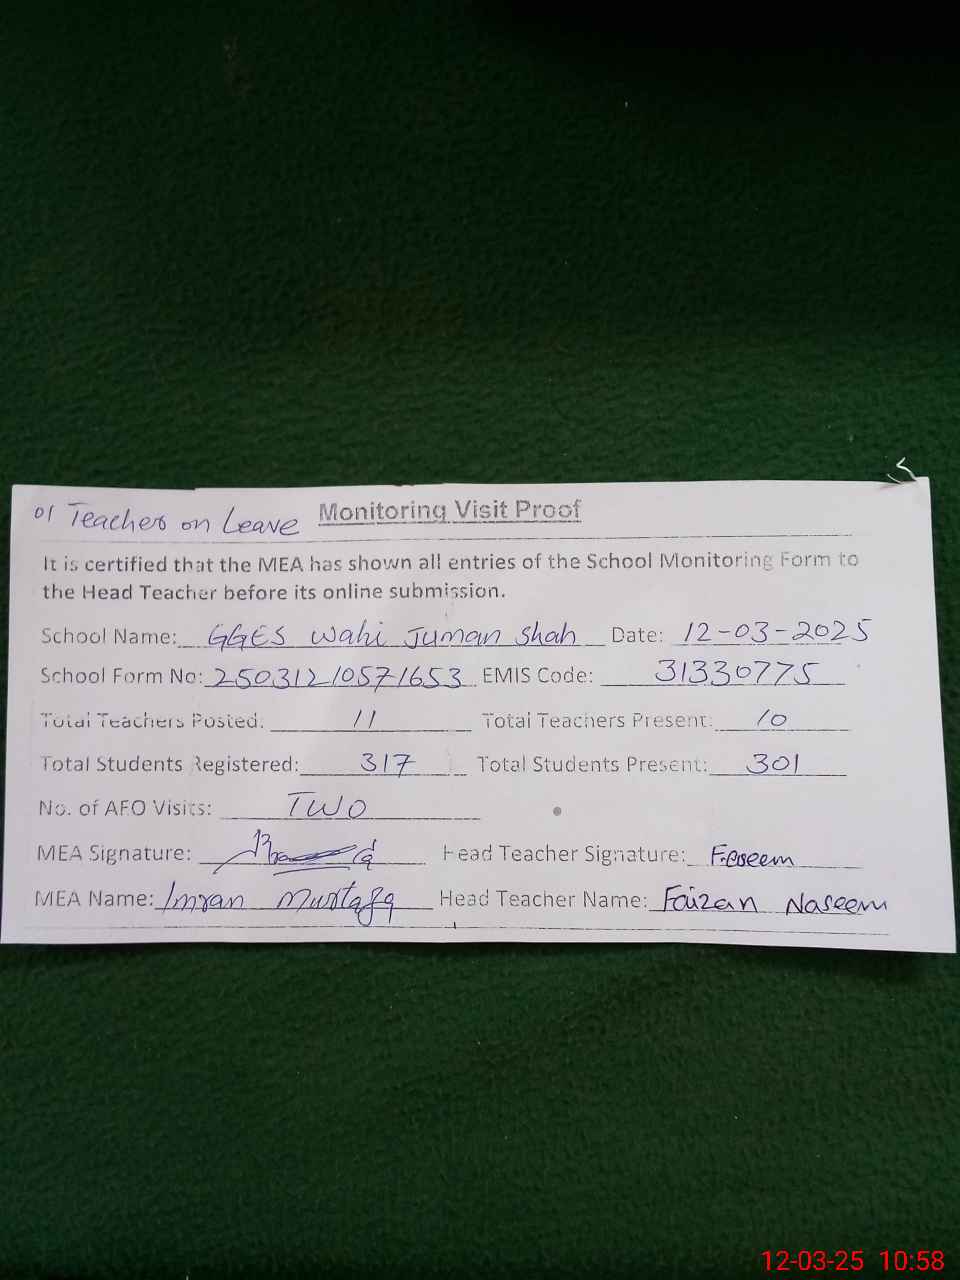 01 Teacher on Leave
Monitoring Visit Proof
It is certified that the MEA has shown all entries of the School Monitoring Form to
the Head Teacher before its online submission.
School Name: GGES Wahi Juman Shah Date: 12-03-2025
School Form No: 25031210571653 EMIS Code: 31330775
Total Teachers Posted: 11 Total Teachers Present: 10
Total Students Registered: 317 Total Students Present: 301
No. of AEO Visits: TWO
MEA Signature: Head Teacher Signature:
MEA Name: Imran Mustafa Head Teacher Name: Faizan Naseem
12-03-25 10:58